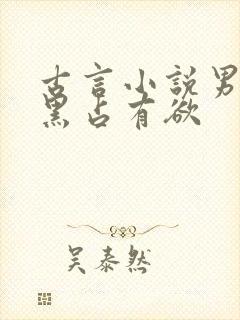 古言小説男
黑占有欲
吴泰然